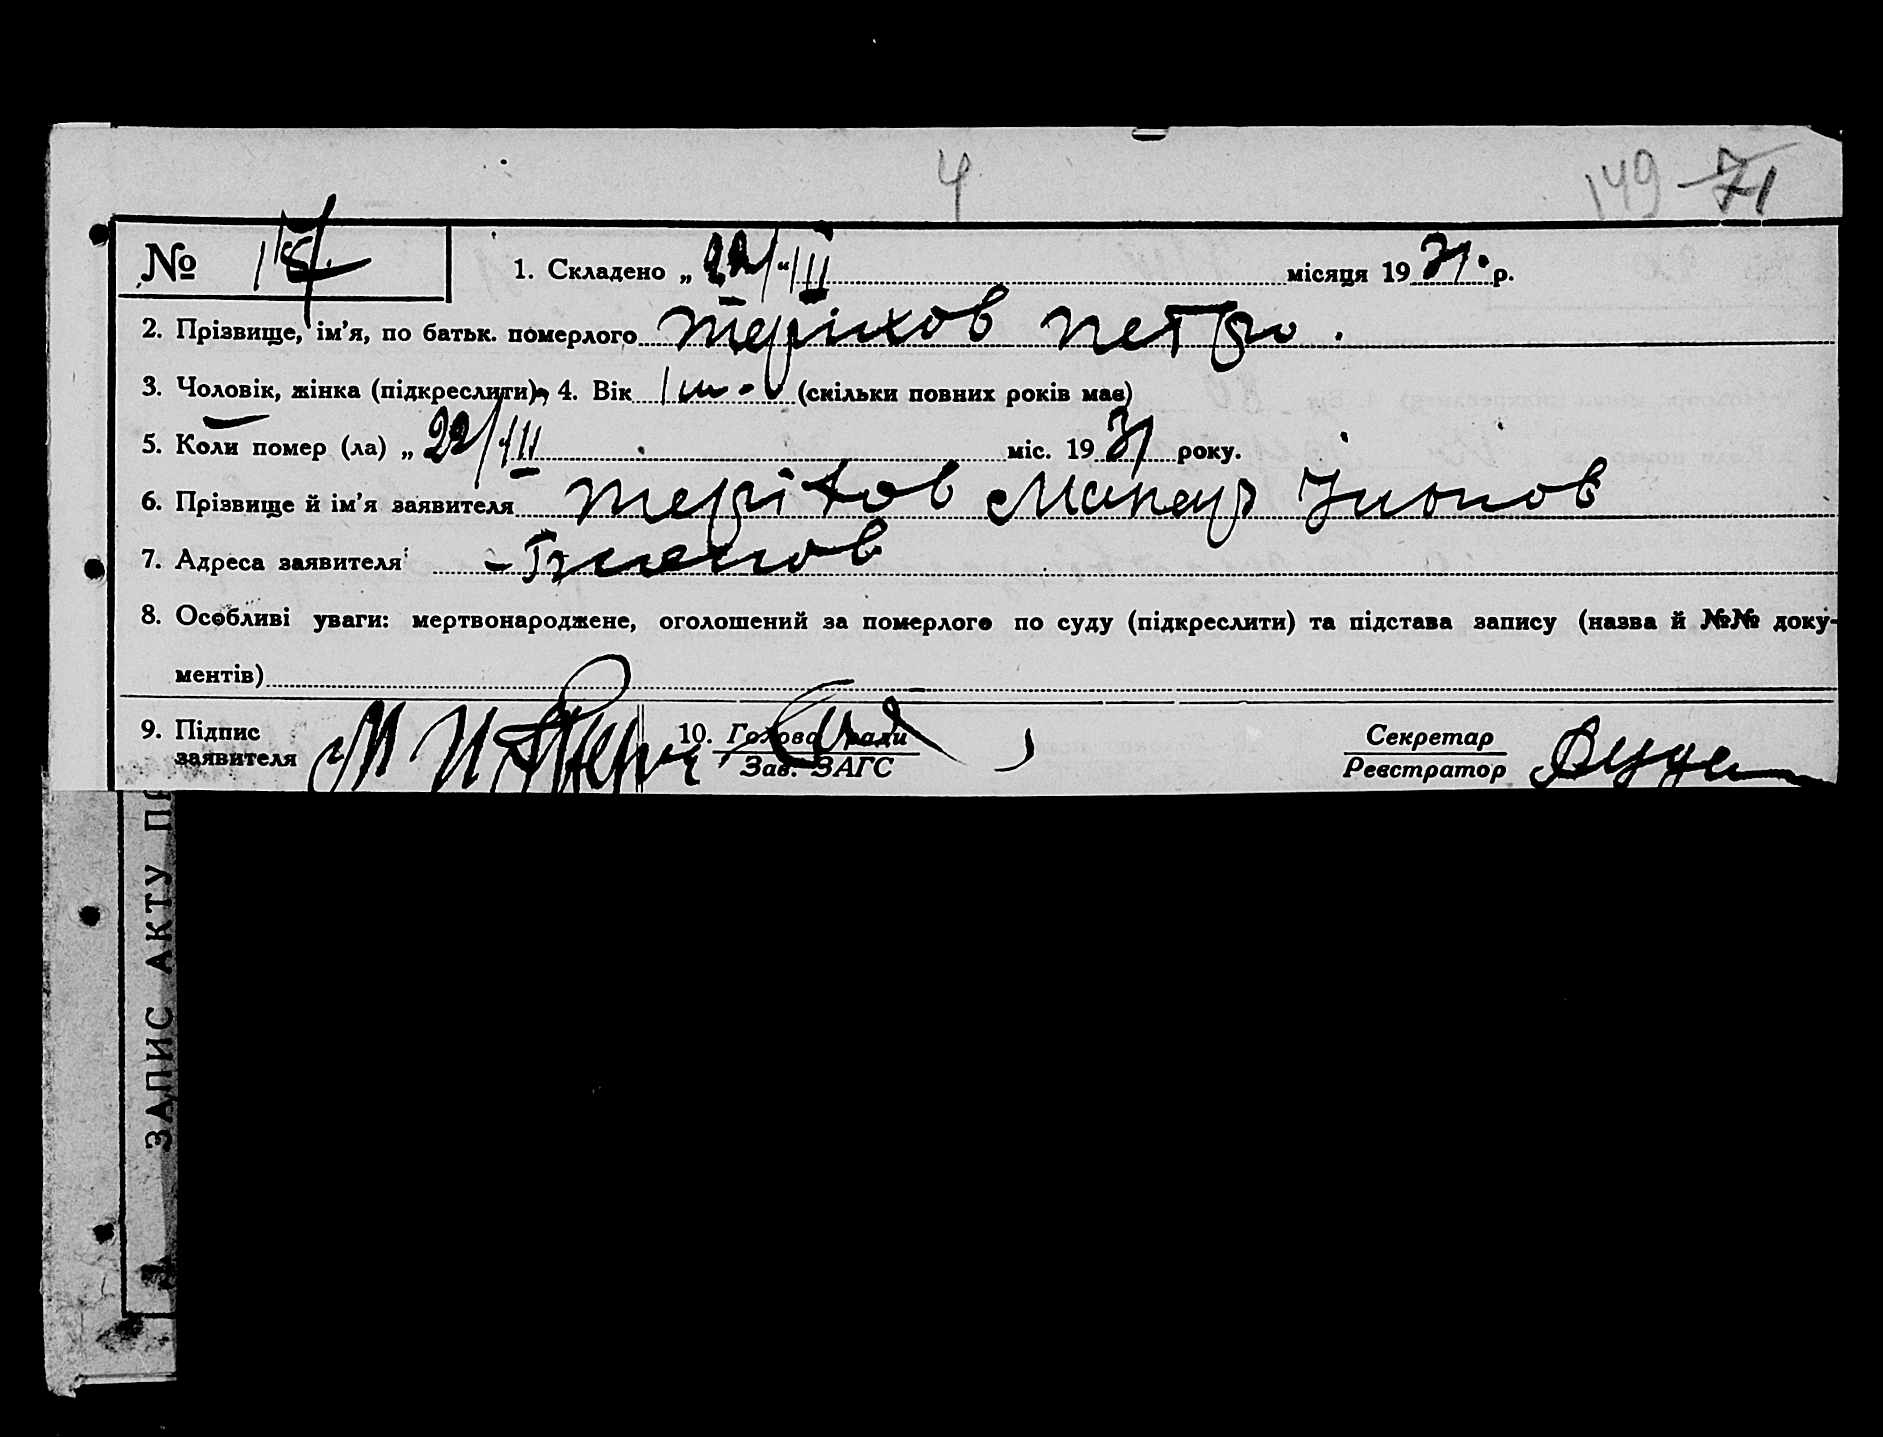 4
149 71
№ 18
1. Складено „ 22/"III місяця 1931.р.
2. Прізвище, ім'я, по батьк. померлого Теріхов Петро.
3. Чоловік, жінка (підкреслити), 4. Вік 1 м. (скільки повних років має)
5. Коли помер (ла) „ 22/III міс. 1931 року.
6. Прізвище й ім'я заявителя Теріхов Макар
7. Адреса заявителя
8. Особливі уваги: мертвонароджене, оголошений за померлого по суду (підкреслити) та підстава запису (назва й №№ доку-
ментів)
9. Підпис 10. Голова ради Секретар
заявителя Зав. ЗАГС Реєстратор
ЗАПИС АКТУ ПР